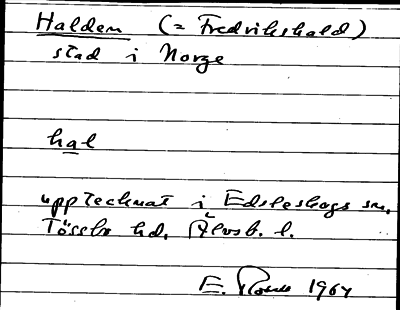 Halden (= Fredrikshald)
stad i Norge
hal
upptecknat i Edsleskogs sn,
Tössbo hd. Älvsb. l.
E. 1964